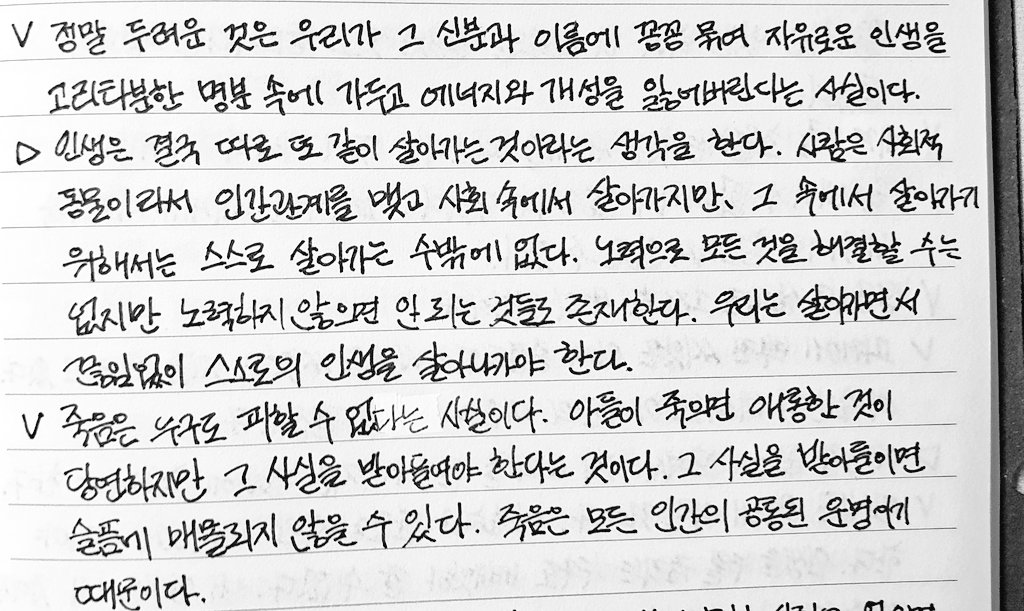 V 정말 두려운 것은 우리가 그 신분과 이름에 꽁꽁 묶여 자유로운 인생을
고리타분한 명분 속에 가두고 에너지와 개성을 잃어버린다는 사실이다.
▷ 인생은 결국 따로 또 같이 살아가는 것이라는 생각을 한다. 사람은 사회적
동물이라서 인간관계를 맺고 사회 속에서 살아가지만, 그 속에서 살아가기
위해서는 스스로 살아가는 수밖에 없다. 노력으로 모든 것을 해결할 수는
없지만 노력하지 않으면 안 되는 것들도 존재한다. 우리는 살아가면서
끊임없이 스스로의 인생을 살아나가야 한다.
V 죽음은 누구도 피할 수 없다는 사실이다. 아들이 죽으면 애통한 것이
당연하지만 그 사실을 받아들여야 한다는 것이다. 그 사실을 받아들이면
슬픔에 매몰되지 않을 수 있다. 죽음은 모든 인간의 공통된 운명이기
때문이다.